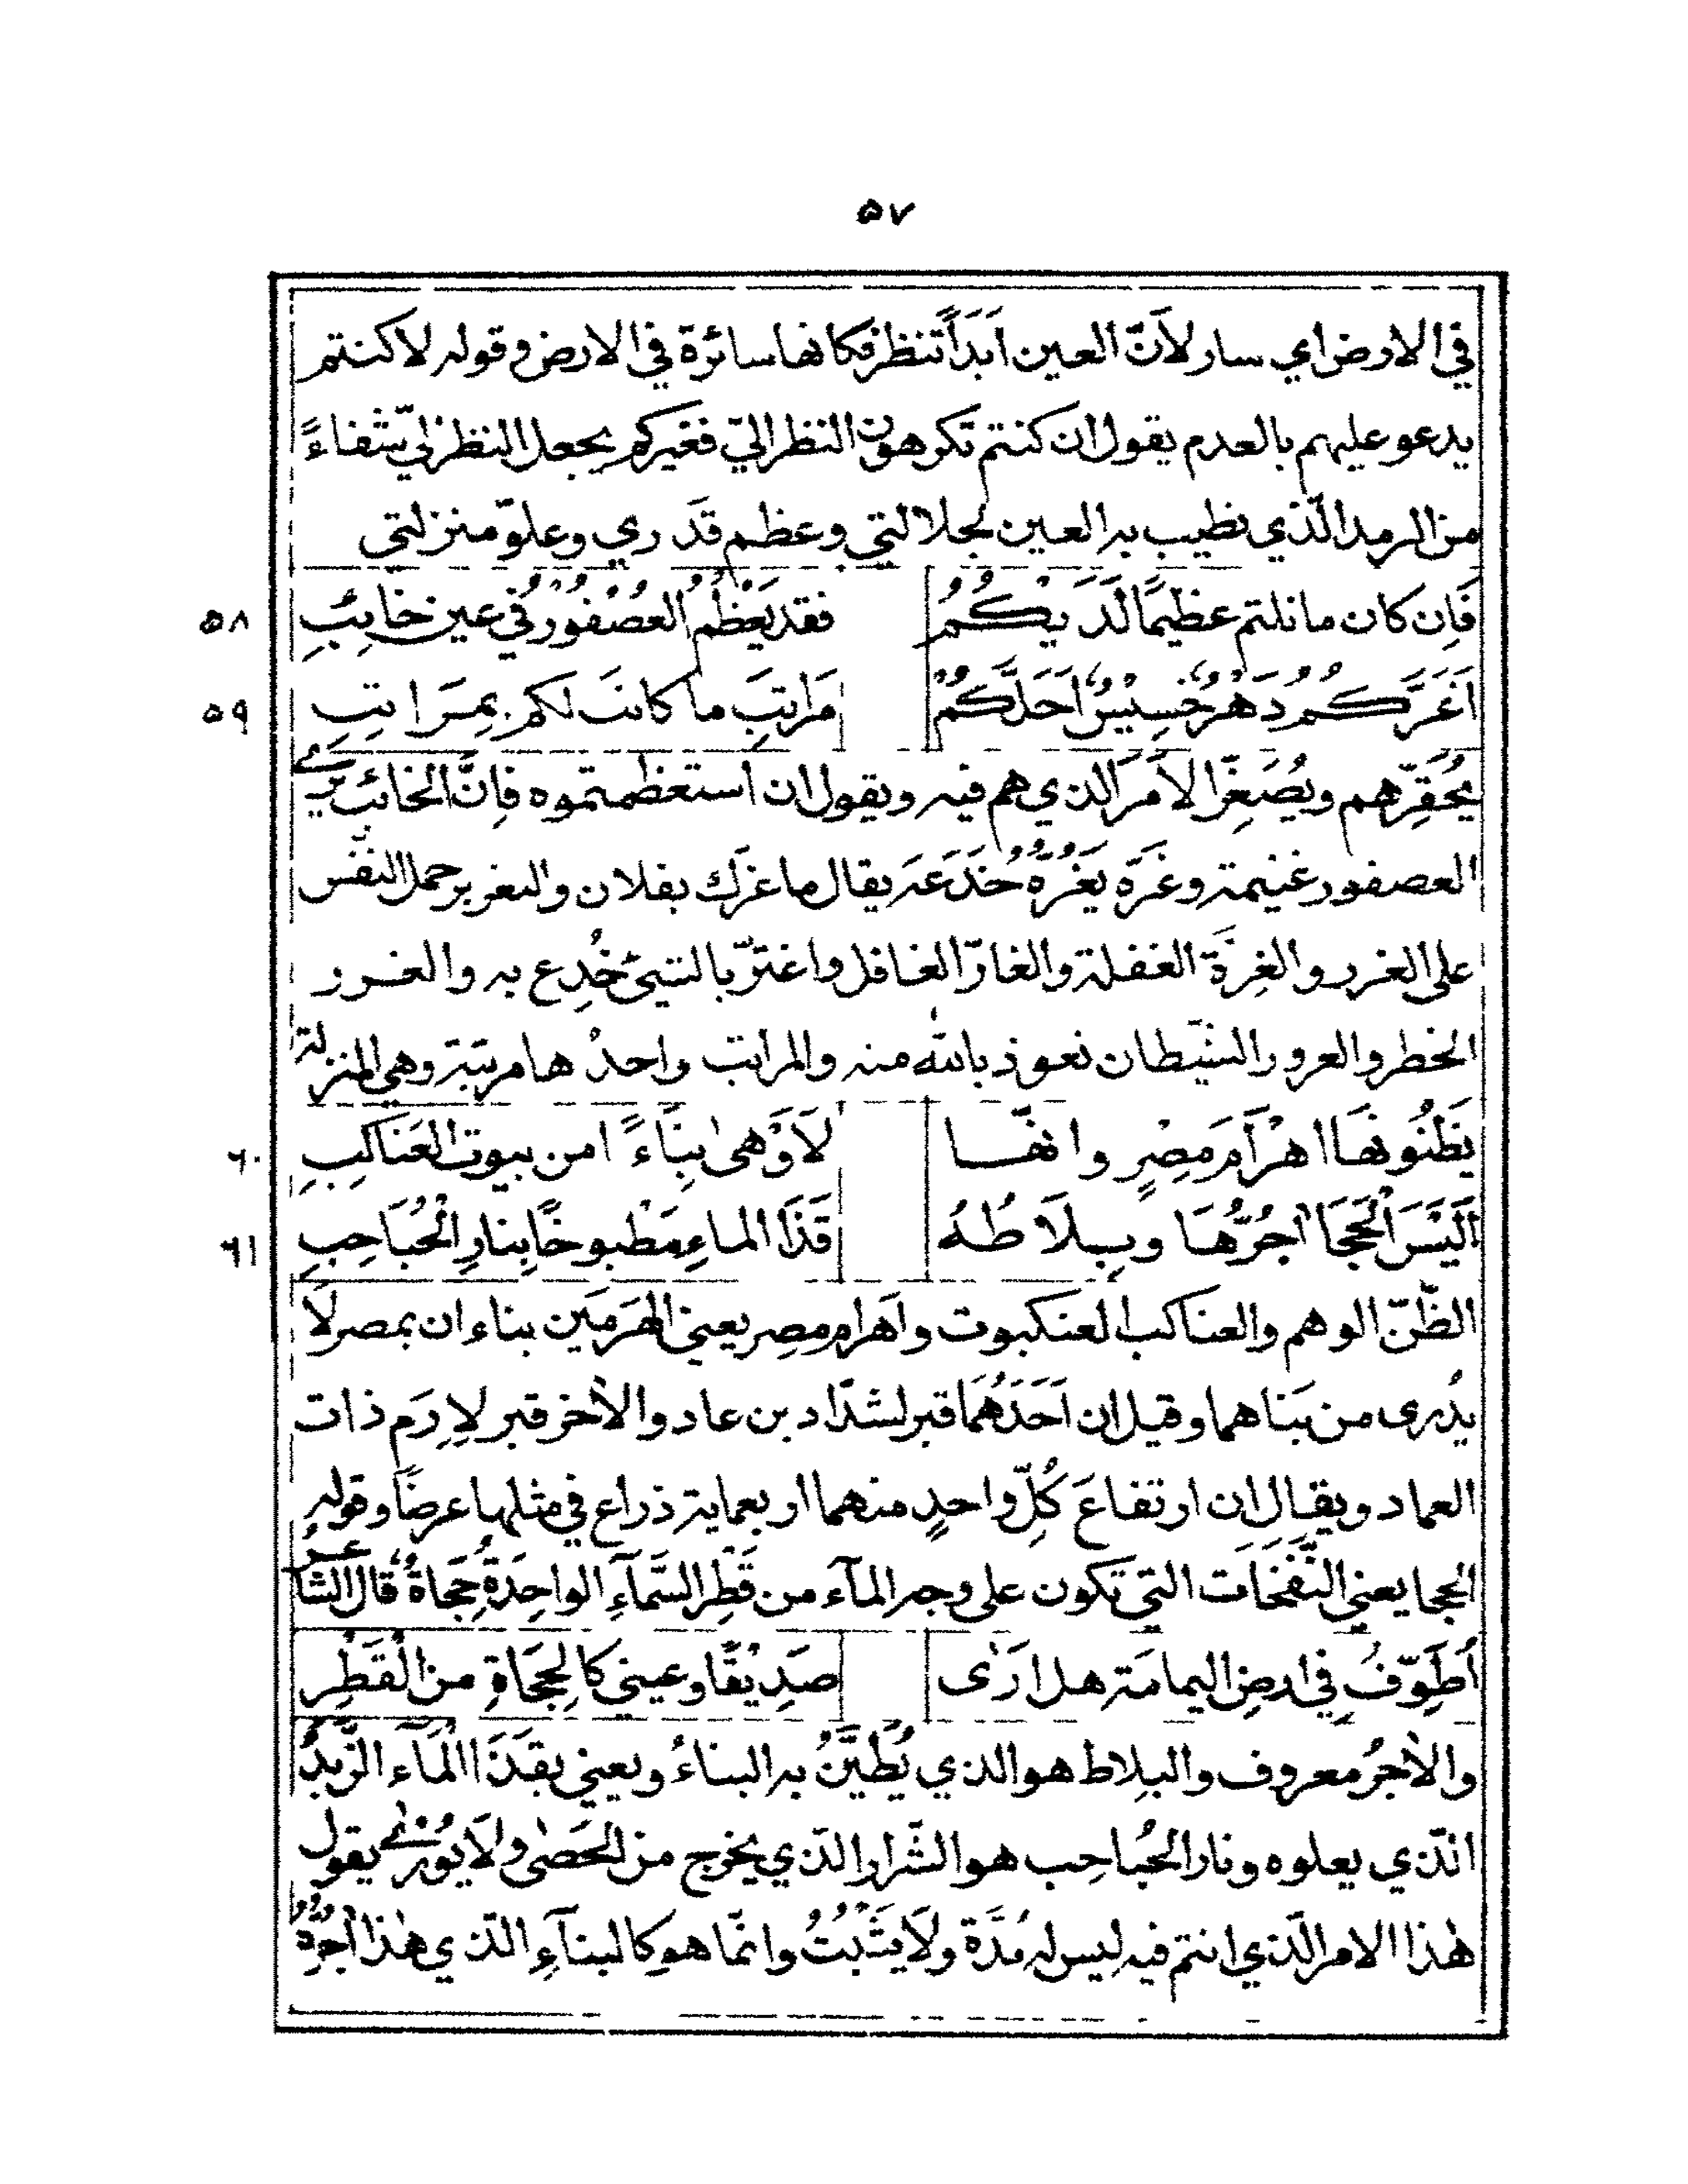 ٥٧
في الارض اي سار لأنّ العين ابَدَاً تنظر فكانها سائرة في الارض وقوله لا كنتم
يدعو عليهم بالعدم يقول ان كنتم تكرهون النظر اليّ فغيركم يجعل النظر ليّ شفاءً
من الرمد الّذي نطيب به العين لجلالتي وعظم قدَري وعلوّ منزلتي
فَاِن كان ما نلتم عظيمًا لَدَيْكُمُ فقد يَعْظُمُ العُصْفُوْرُ في عين خائِبِ ٥٨
اَغَرَّكُمُ دَهْرٌ خَسِيْسٌ اَحَلَّكُمْ مَراتبَ ما كانت لكم بمَراتبِ ٥٩
يُحَقِّرُهم ويُصَغِّر الاَمرَ الذي هم فيه ويقول ان استعظمتموه فاِنَّ الخائب يرى
العصفور غنيمة وغَرَّه يَغُرُّهُ خَدَعَه يقال ما غرّك بفلان والتغرير حمل النفس
على الغرر والغِرَّة الغفلة والغارّ الغافل واغترّ بالشيئ خُدِع به والغرر
الخطر والعرور الشّيطان نعوذ بالله منه والمراتب واحدُها مرتبة وهي المنزلة
يَظُنُّونَهَا اهْرَامَ مِصْرٍ وانّهَا لاَوْهى بِنَاءً امن بيوت العَنَاكبِ ٦٠
اَلَيْسَ الْحَجَا اٰجُرُّهَا وبِلاَطُهُ قَذَا الماءِ مَطْبوخًا بِنارِ الْحُبَاحِبِ ٦١
الظّنّ الوهم والعناكب العنكبوت واَهرام مِصر يعني الهَرَمَين بناءان بمصر لاَ
يُدرى من بَنَاهما وقيل ان اَحَدَهُمَا قبر لشدّاد بن عاد والاٰخر قبر لاِرَم ذات
العماد ويقال ان ارتفاعَ كُلّ واحدٍ منهما اربعماية ذراع في مثلها عرضًا وقوله
الحجا يعني النَّفَخَات التي تكون على وجه المآء من قَطرِ السَّمآءِ الواحِدَةُ حَجَاةٌ قال الشاعر
اُطَوّفُ في ارضِ اليمامَة هل اَرَى صَدِيْقًا وعيني كالحَجَاةِ من القَطْرِ
والاٰجُرُ معروف والبِلاط هو الذي يُطَيَّنُ به البناءُ ويعني بقَذَا المَآء الزّبدُ
الّذي يعلوه ونار الحُباحِب هو الشّرار الّذي يخرج من الحَصٰى ولاَ يُوْرٰى يقول
هٰذا الامر الّذي انتم فيه ليس له مُدَّة ولاَ يَثْبُتُ وانّما هو كالبنآءِ الّذي هٰذا اٰجرُّهُ